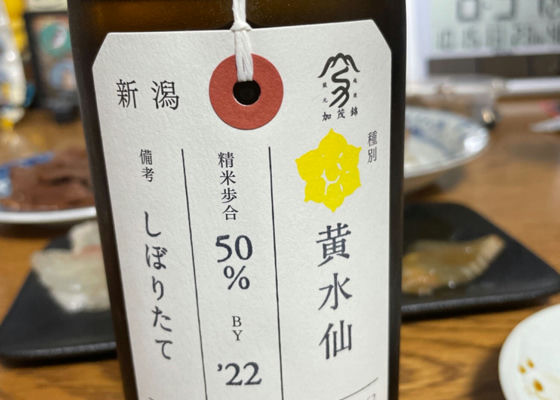 新潟
蔵元
成果
加茂錦
種別
黄水仙
精米歩合
50
%
BY
'22
備考
しぼりたて